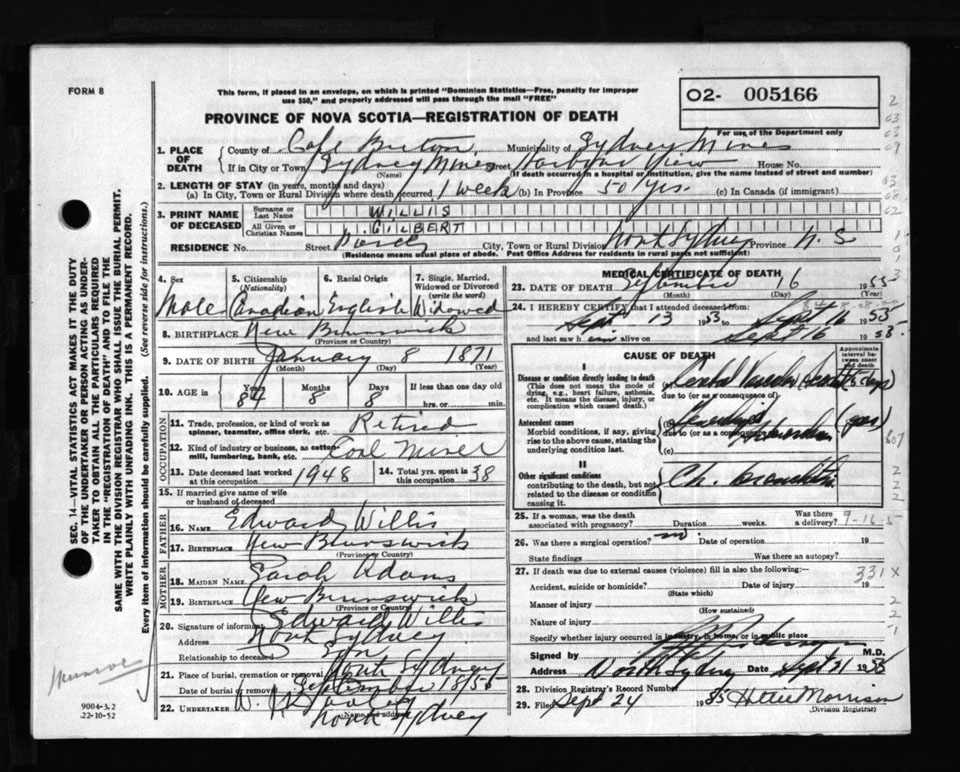 FORM 8
This form, if placed in an envelope, on which is printed "Dominion Statistics—Free, penalty for improper
use $50," and properly addressed will pass through the mail "FREE"
O2- 005166
PROVINCE OF NOVA SCOTIA—REGISTRATION OF DEATH
For use of the Department only
1. PLACE OF DEATH
County of Cape Breton Municipality of Sydney Mines
If in City or Town Sydney Mines Street Harbour View House No.
(Name) (If death occurred in a hospital or institution, give the name instead of street and number)
2. LENGTH OF STAY (in years, months and days)
(a) In City, Town or Rural Division where death occurred 1 week (b) In Province 50 yrs. (c) In Canada (if immigrant)
3. PRINT NAME OF DECEASED
Surname or Last Name WILLIS
All Given or Christian Names GILBERT
RESIDENCE No. Street City, Town or Rural Division North Sydney Province N. S.
(Residence means usual place of abode. Post Office Address for residents in rural parts not sufficient)
4. Sex 5. Citizenship (Nationality) 6. Racial Origin 7. Single, Married, Widowed or Divorced (write the word)
Male Canadian English Widowed
8. BIRTHPLACE New Brunswick
(Province or Country)
9. DATE OF BIRTH January 8 1871
(Month) (Day) (Year)
10. AGE in Years Months Days If less than one day old
84 8 8 hrs. or min.
OCCUPATION
11. Trade, profession, or kind of work as spinner, teamster, office clerk, etc. Retired
12. Kind of industry or business, as cotton mill, lumbering, bank, etc. Coal Miner
13. Date deceased last worked at this occupation 1948 14. Total yrs. spent in this occupation 38
15. If married give name of wife or husband of deceased
FATHER
16. NAME Edward Willis
17. BIRTHPLACE New Brunswick
(Province or Country)
MOTHER
18. MAIDEN NAME Sarah Adams
19. BIRTHPLACE New Brunswick
(Province or Country)
20. Signature of informant Edward Willis
Address North Sydney
Relationship to deceased Son
21. Place of burial, cremation or removal North Sydney
Date of burial or removal September 18/55
22. UNDERTAKER
Name and address North Sydney
MEDICAL CERTIFICATE OF DEATH
23. DATE OF DEATH September 16 1955
(Month) (Day) (Year)
24. I HEREBY CERTIFY that I attended deceased from
Sept 13 1953 to Sept 16 1955
and last saw h im alive on Sept 16 1953.
CAUSE OF DEATH
Approximate interval between onset and death
I
Disease or condition directly leading to death
(This does not mean the mode of dying, e.g., heart failure, asthenia, etc. It means the disease, injury, or complication which caused death.)
due to (or as a consequence of)
Antecedent causes
Morbid conditions, if any, giving rise to the above cause, stating the underlying condition last
(b)
due to (or as a consequence of)
(c)
II
Other significant conditions
contributing to the death, but not related to the disease or condition causing it.
Ch. bronchitis
25. If a woman, was the death associated with pregnancy? Duration weeks. Was there a delivery?
26. Was there a surgical operation? no Date of operation 19
State findings Was there an autopsy?
27. If death was due to external causes (violence) fill in also the following:—
331 X
Accident, suicide or homicide? Date of injury 19
(State which)
Manner of injury
(How sustained)
Nature of injury
Specify whether injury occurred in industry, in home, or in public place
Signed by M.D.
Address North Sydney Date Sept 21 1955
28. Division Registrar's Record Number 85
29. Filed Sept 24 19 Hattie Morrison
(Division Registrar)
9004-3.2
22-10-52
SEC. 14—VITAL STATISTICS ACT MAKES IT THE DUTY
OF THE UNDERTAKER OR PERSON ACTING AS UNDER-
TAKER TO OBTAIN ALL THE PARTICULARS REQUIRED
IN THE "REGISTRATION OF DEATH" AND TO FILE THE
SAME WITH THE DIVISION REGISTRAR WHO SHALL ISSUE THE BURIAL PERMIT.
WRITE PLAINLY WITH UNFADING INK. THIS IS A PERMANENT RECORD.
Every item of Information should be carefully supplied. (See reverse side for instructions.)